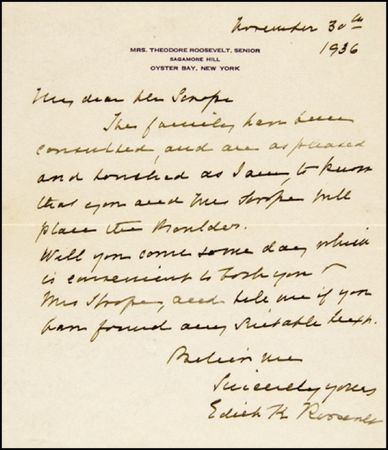 November 30th
1936
MRS. THEODORE ROOSEVELT, SENIOR
SAGAMORE HILL
OYSTER BAY, NEW YORK
My dear Mr
The family have been
consulted, and are as pleased
and touched as I am, to know
that you and Mrs will
place the Boulder.
Will you come some day which
is convenient to both you
Mrs and tell me if you
have found any suitable text.
Believe me
Sincerely yours
Edith K Roosevelt